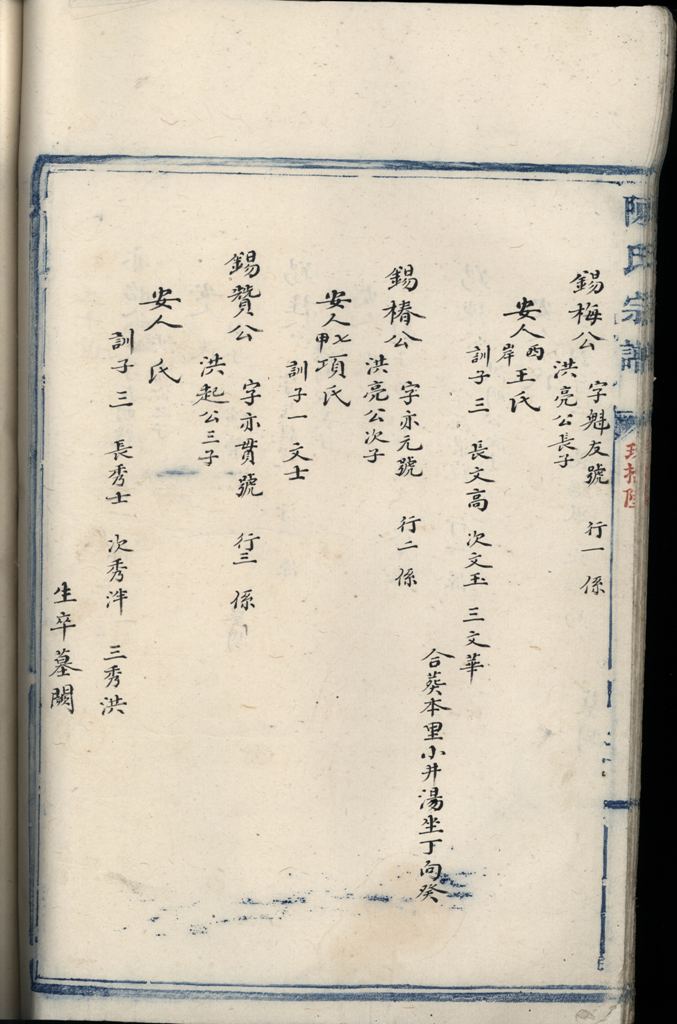 陳氏宗譜
錫梅公 字魁友號 行一 係
洪亮公長子
安人西岸王氏
訓子三 長文高 次文玉 三文華
合葵本里小井湯坐丁向癸
錫椿公 字亦元號 行二 係
洪亮公次子
安人項氏
訓子一 文士
錫贊公 字亦贯號 行三 係
洪起公三子
安人 氏
訓子三 長秀士 次秀泮 三秀洪
生卒墓闕